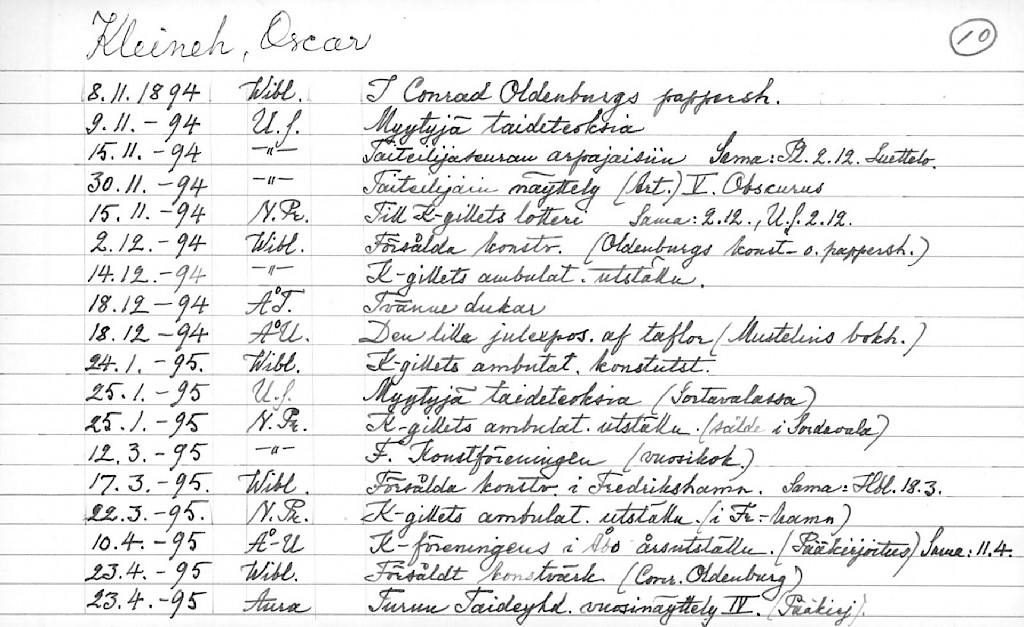 Kleineh, Oscar
10
8.11.1894 Wibl. I Conrad Oldenburgs pappersh.
9.11.-94 U.S. Myytyjä taideteoksia
15.11.-94 -"- Taiteilijaseuran arpajaisiin Sama: Pl. 2.12. Luettelo.
30.11.-94 -"- Taiteilijain näyttely (Art.) V. Obscurus
15.11.-94 N.Pr. Till K-gillets lotteri Sama: 2.12., U.S. 2.12.
2.12.-94 Wibl. Försålda konstv. (Oldenburgs konst- o. pappersh.)
14.12.-94 -"- K-gillets ambulat. utställn.
18.12-94 ÅT. Tvänne dukar
18.12-94 ÅU. Den lilla julexpos. af taflor (Mustelins bokh.)
24.1.-95. Wibl. K-gillets ambulat. konstutst.
25.1.-95 U.S. Myytyjä taideteoksia (Sortavalassa)
25.1.-95 N.Pr. K-gillets ambulat. utställn. (sålda i Sordavala)
12.3.-95 -"- F. Konstföreningen (vuosikok.)
17.3.-95. Wibl. Försålda konstv. i Fredrikshamn. Sama: Hbl. 18.3.
22.3.-95. N.Pr. K-gillets ambulat. utställn. (i Fr-hamn)
10.4.-95 Å-U K-föreningens i Åbo årsutställn. (Pääkirjoitus) Sama: 11.4.
23.4.-95 Wibl. Försåldt konstvärk (Conr. Oldenburg)
23.4.-95 Aura Turun Taideyhd. vuosinäyttely IV. (Pääkirj.)